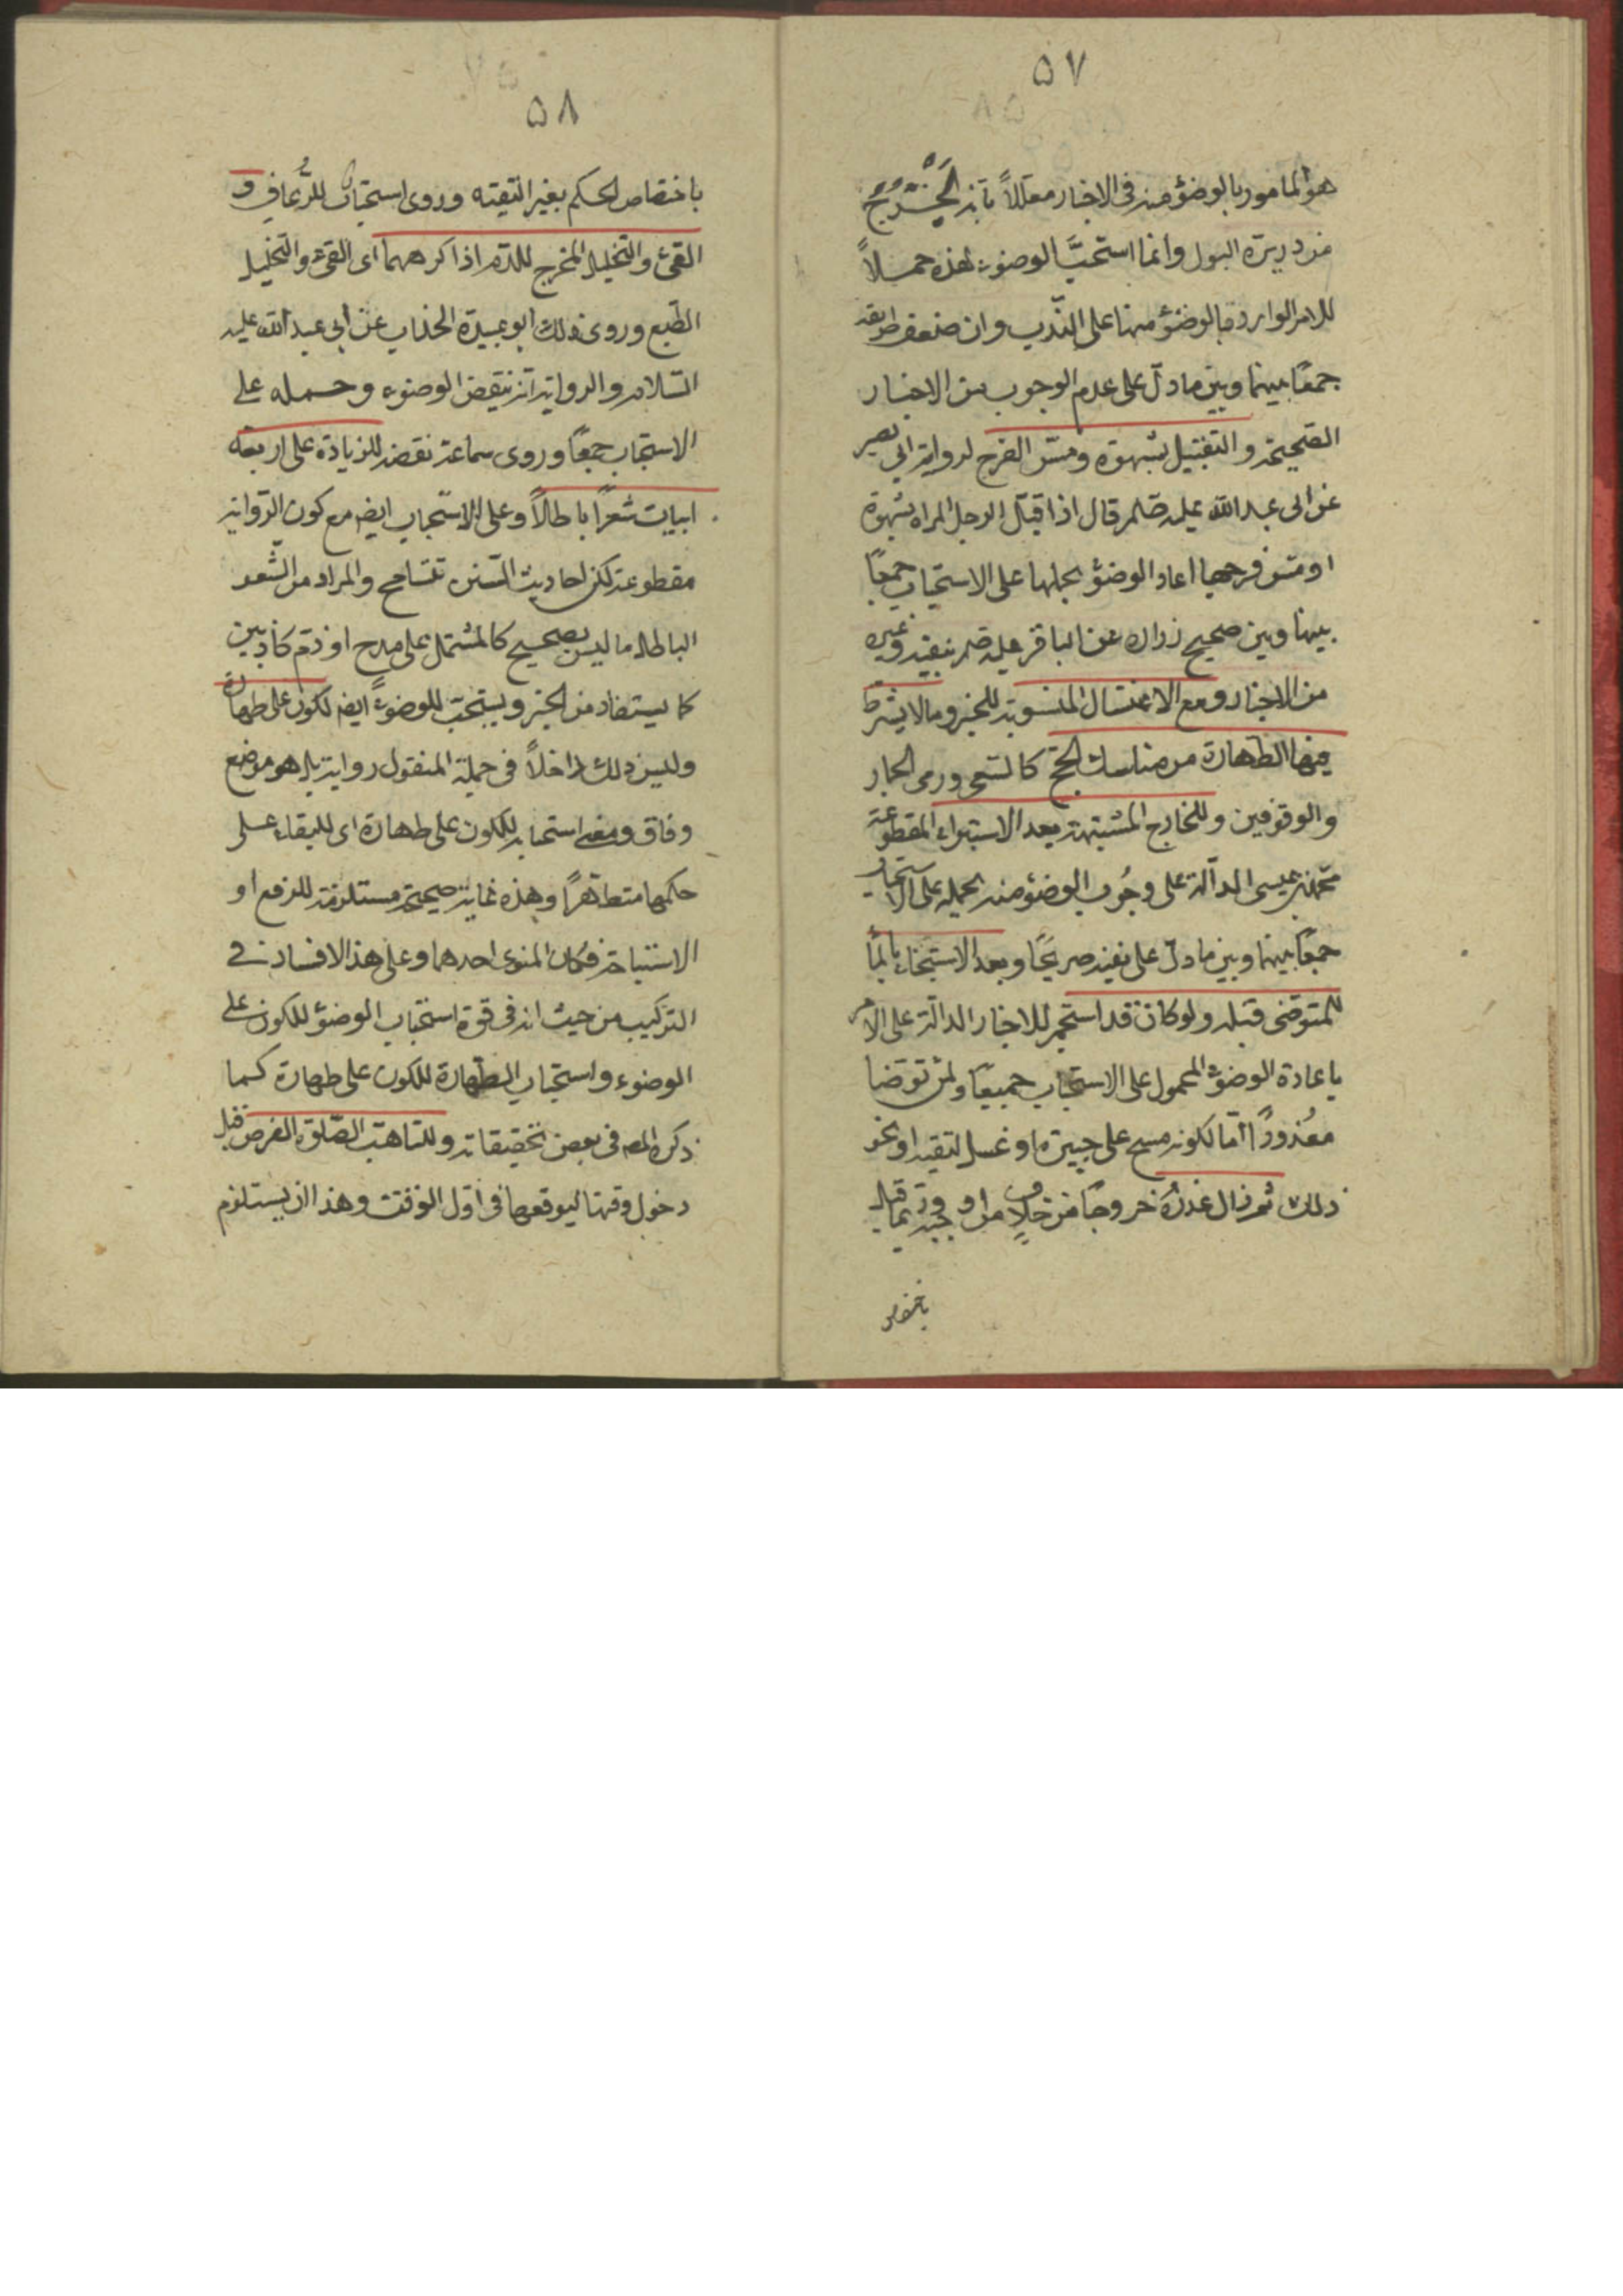 ۵۷
هو المامور بالوضوء منه فی الاخبار معللاً بانه یَخْرُجُ
من دریرة البول وانما استحبّ الوضوء لهذه حملاً
للامر الوارد بالوضوء منها علی النّدب وان ضعف طریقه
جمعًا بینها وبین ما دلّ علی عدم الوجوب من الاخبار
الصّحیحة والتقبیل بشهوة ومسّ الفرج لروایة ابی بصیر
عن ابی عبد الله علیه قال اذا قبّل الرجل المراة بشهوة
او مسّ فرجها اعاد الوضوء بحملها علی الاستحباب جمعًا
بینها وبین صحیح زرارة عن الباقر علیه بنفیه وغیره
من الاخبار ومع الاغسال المسنونة للخبر وما لا یشترط
فیها الطهارة من مناسك الحج کالسّعی ورمی الجمار
والوقوفین وللخارج المشتبه بعد الاستبراء المقطوعة
محمّد بن عیسی الدالّة علی وجُوب الوضوء منه بحمله علی الاستحباب
جمعًا بینها وبین ما دلّ علی نفیه صریحًا وبعد الاستنجاء بالمآ
للمتوضی قبله ولو کان قد استجمر للاخبار الدالّة علی الامر
باعادة الوضوء المحمول علی الاستحباب جمیعًا ولمن توضا
معُذورًا امّا لکونه مسح علی جبیرة او غسل لتقیة او نحو
ذلك ثم زال عذرُه خروجًا من خلاف من اوجبه وقیل
باختصاص
۵۸
باختصاص الحکم بغیر التقیّه وروی استحبابُ للرُّعافِ و
القئ والتخلیل المخرج للدّم اذا کرههما ای القئ والتخلیل
الطّبع وروی ذلك ابو عبیدة الحذاء عن ابی عبد الله علیه
السّلام والروایة انه ینقض الوضوء وحمله علی
الاستحباب جمعًا وروی سماعة نقضه للزیادة علی اربعة
ابیات شعرًا باطلاً وعلی الاستحباب ایضم مع کون الرّوایة
مقطوعة لکن احادیث السّنن تتسامح والمراد من الشّعر
الباطل ما لیس بصحیح کالمشتمل علی مدح او ذمّ کاذبین
کما یستفاد من الخبر ویستحبّ للوضوء ایضم لکون علی طهارة
ولیس ذلك داخلاً فی جملة المنقول روایة بل هو موضع
وفاق ومعنی استحبابه للکون علی طهارة ای للبقاء علی
حکمها متطهّرًا وهذه غایة صحیحة مستلزمة للرفع او
الاستباحة فکان المنوی احدهما وعلی هذا لافساد فی
الترکیب من حیث انه فی قوّة استحباب الوضوء للکون علی
الوضوء واستحباب الطّهارة للکون علی طهارة کما
ذکره المص فی بعض تحقیقاته وللتاهّب الصّلوة الفرض قبل
دخول وقتها لیوقعها فی اوّل الوقت وهذا ان یستلزم